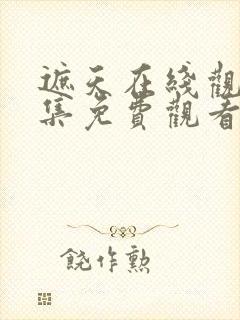 遮天在綫觀
集免費觀看
饒作勲